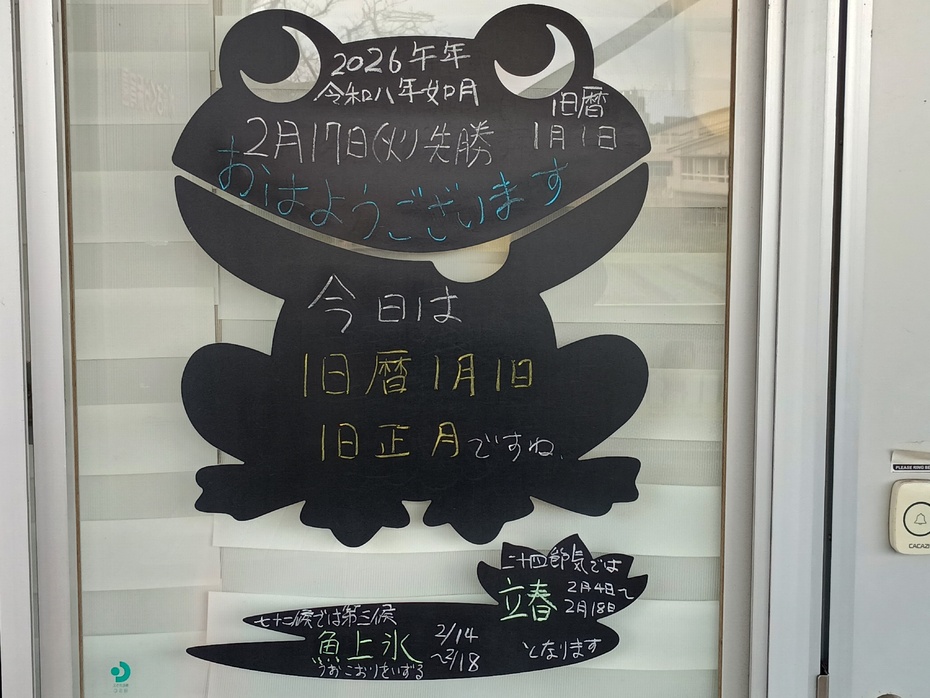 2026午年
令和八年如月
旧暦
1月1日
2月17日(火)先勝
おはようございます
今日は
旧暦1月1日
旧正月ですね、
二十四節気では
立春 2月4日～
2月18日
となります
七十二候では第三候
魚上氷 2/14
～2/18
うおこおりをいずる
PLEASE RING BE
CACAZI